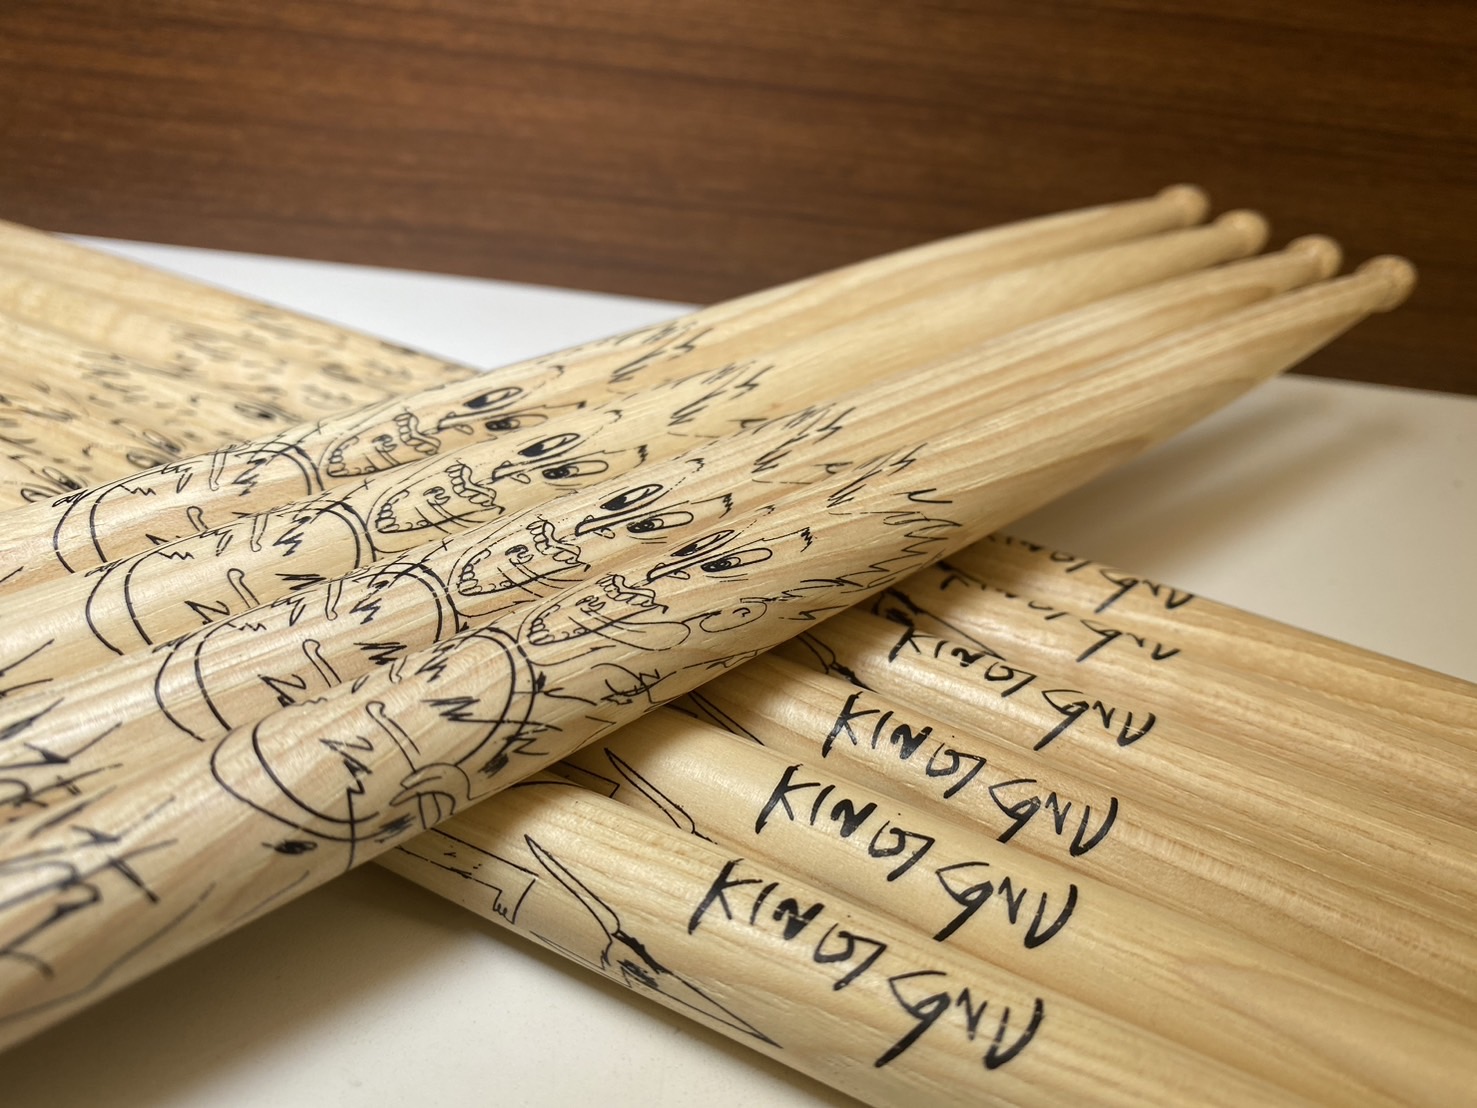 KING GNU
KING GNU
KING GNU
KING GNU
KING GNU
KING GNU